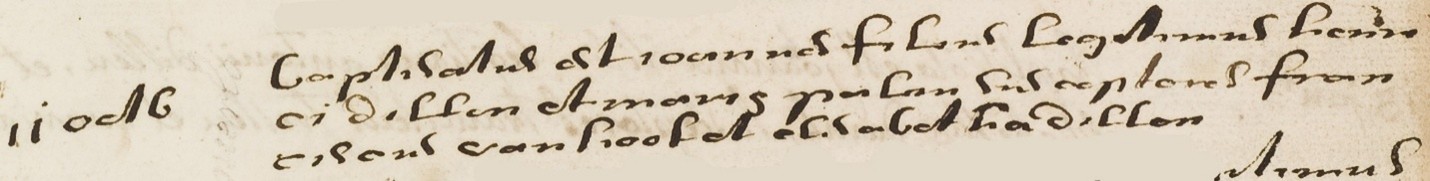 11 octb
baptisatus est ioannes filius legitimus henri
ci dillen et maria paulen susceptores fran
ciscus van hoof et elisabet dillen